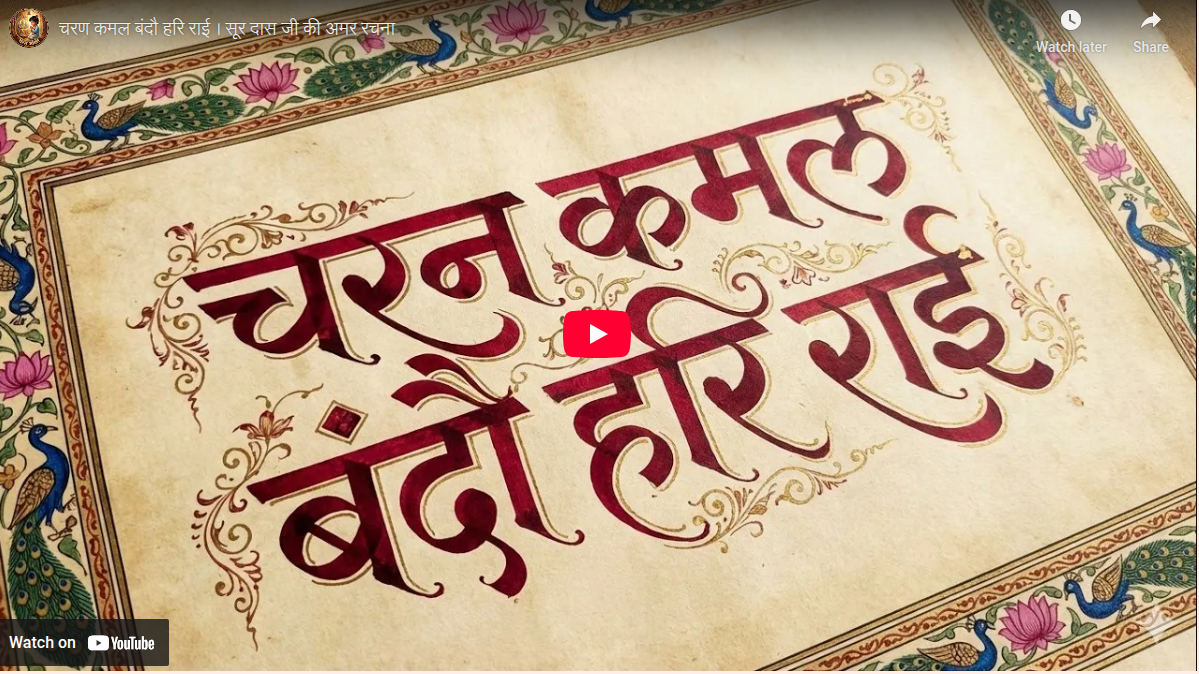 चरण कमल बंदौ हरि राई । सूर दास जी की अमर रचना
Watch later
Share
चरन कमल
बंदौ हरि राई
Watch on YouTube